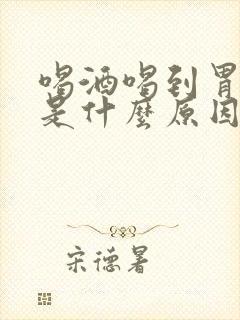 喝酒喝到胃
是什麼原因
宋德暑